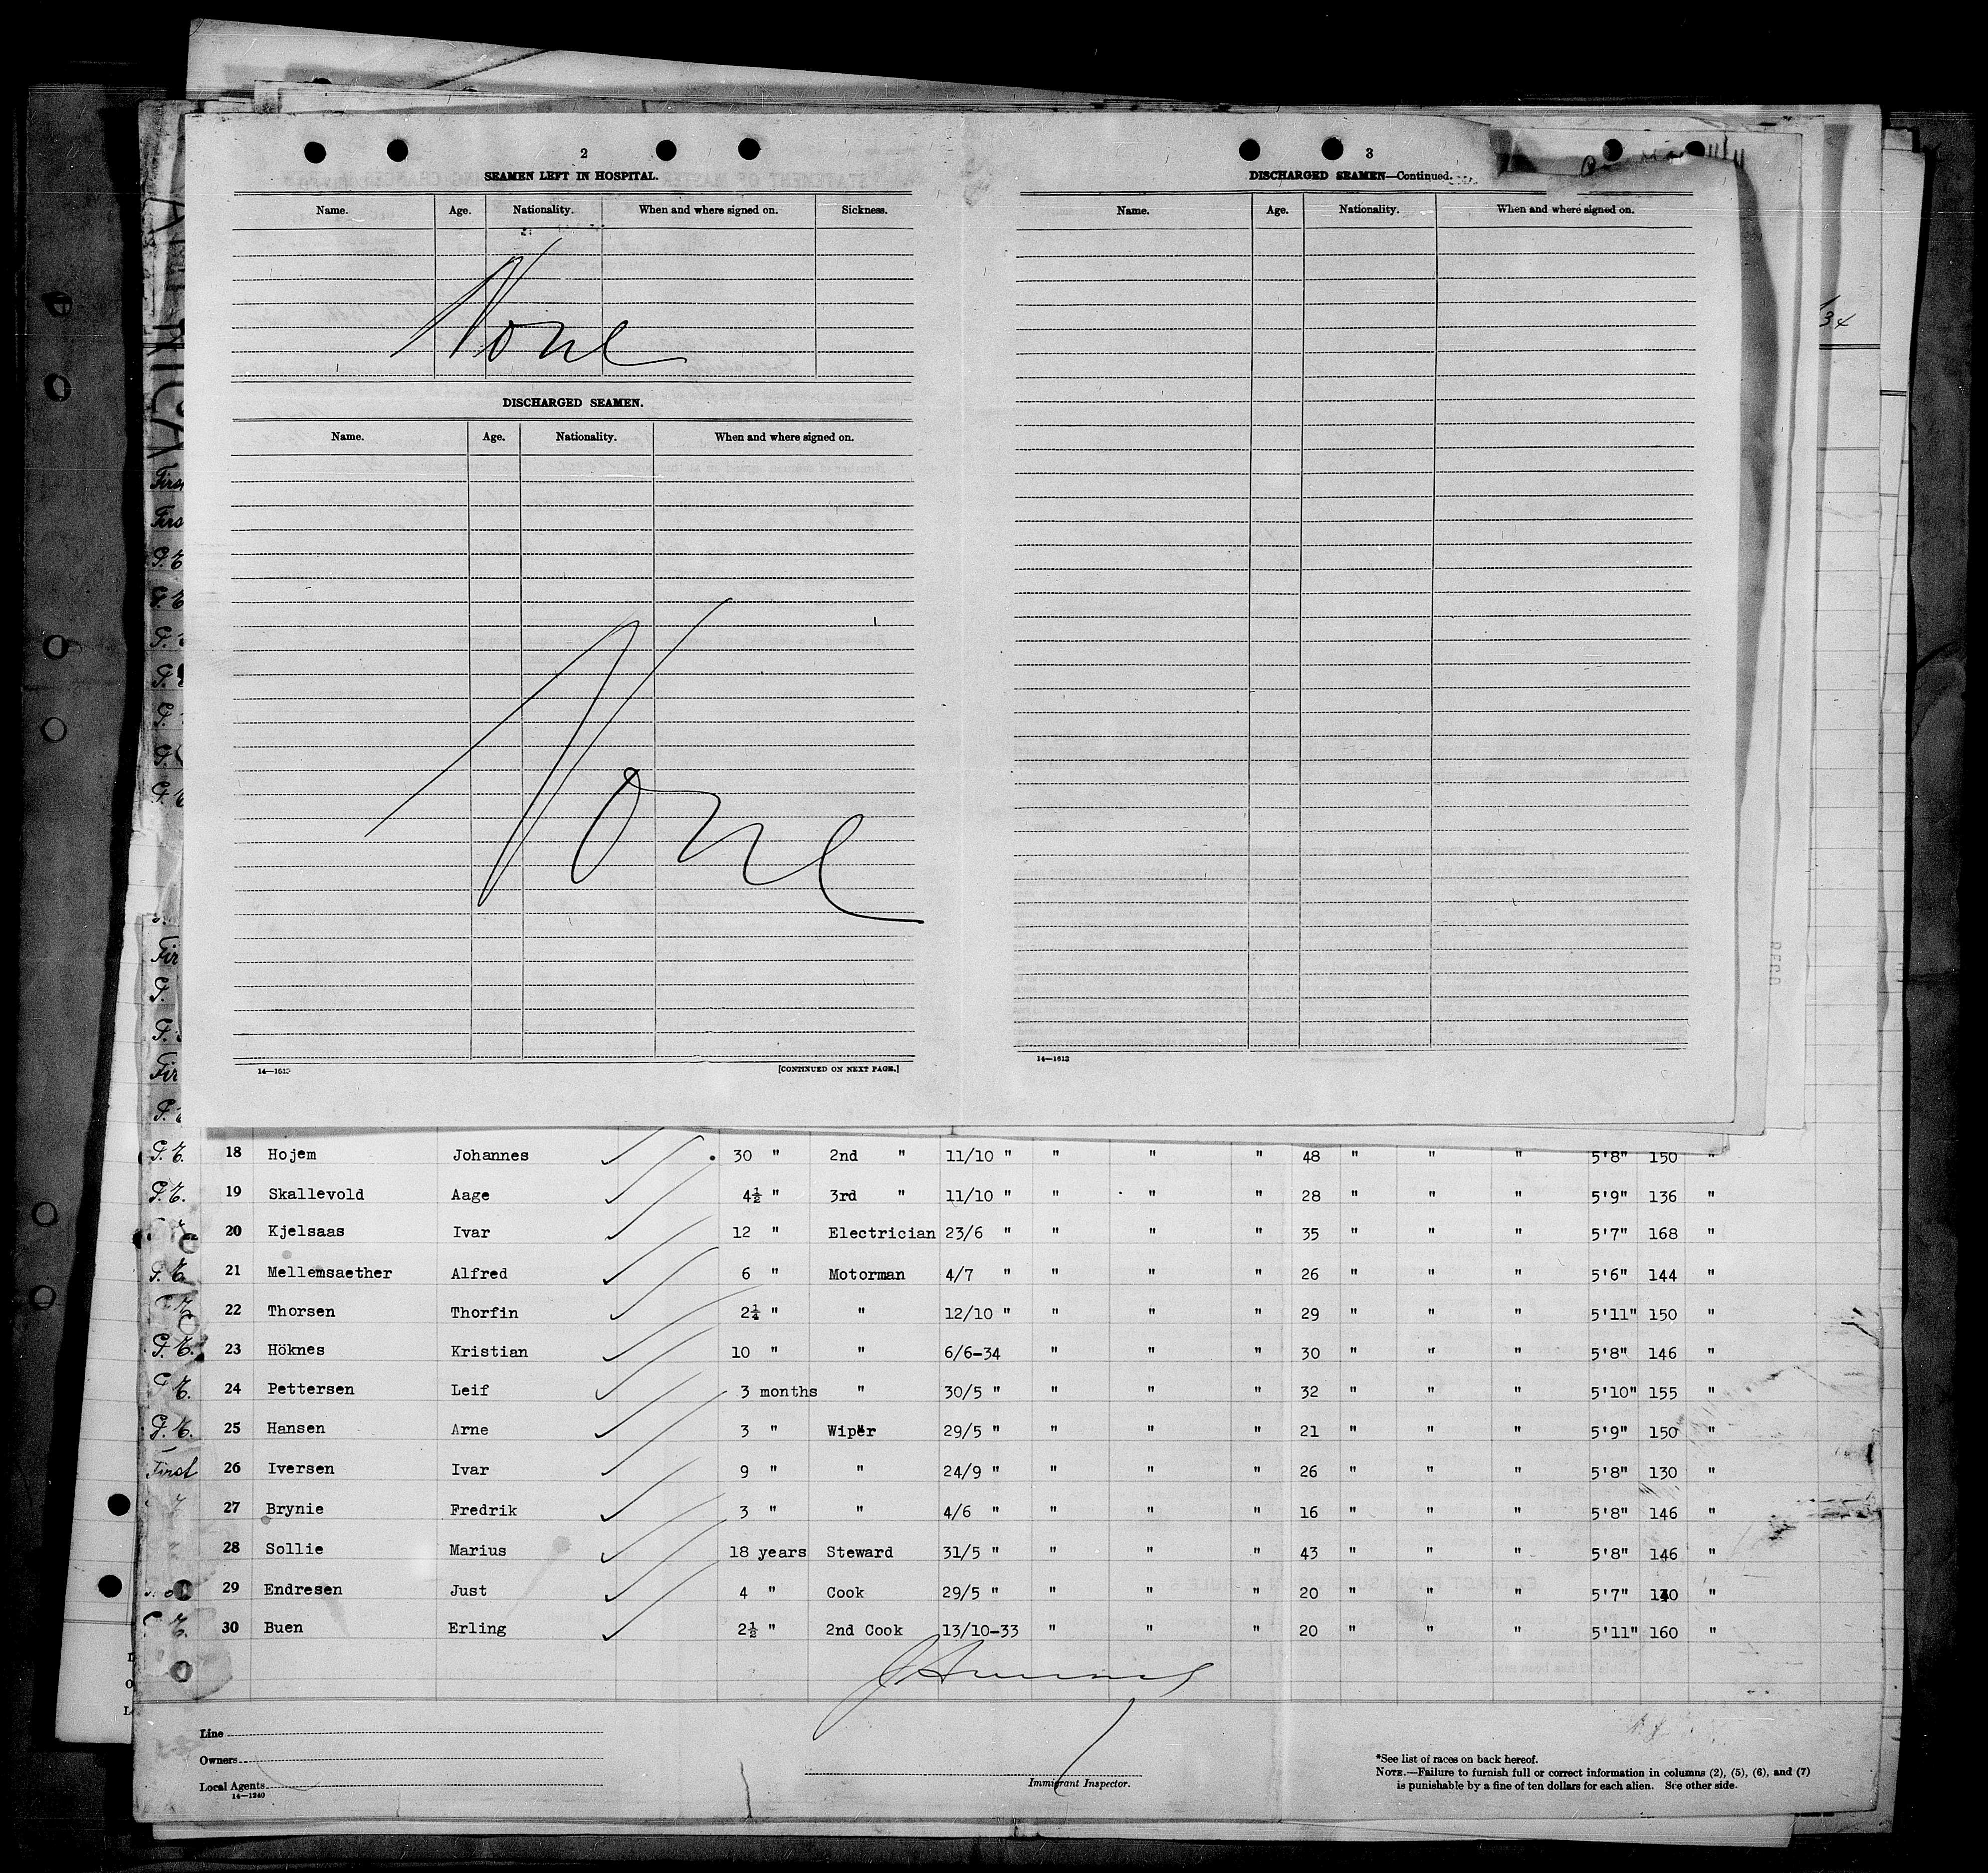 2
SEAMEN LEFT IN HOSPITAL.
Name. Age. Nationality. When and where signed on. Sickness.
None
DISCHARGED SEAMEN.
Name. Age. Nationality. When and where signed on.
None
14—1613 [CONTINUED ON NEXT PAGE.]
3
DISCHARGED SEAMEN—Continued.
Name. Age. Nationality. When and where signed on.
14—1613
34
First
18 Hojem Johannes 30 " 2nd " 11/10 " " " " 48 " " " 5'8" 150 "
19 Skallevold Aage 4½ " 3rd " 11/10 " " " " 28 " " " 5'9" 136 "
20 Kjelsaas Ivar 12 " Electrician 23/6 " " " " 35 " " " 5'7" 168 "
21 Mellemsaether Alfred 6 " Motorman 4/7 " " " " 26 " " " 5'6" 144 "
22 Thorsen Thorfin 2¼ " " 12/10 " " " " 29 " " " 5'11" 150 "
23 Höknes Kristian 10 " " 6/6-34 " " " 30 " " " 5'8" 146 "
24 Pettersen Leif 3 months " 30/5 " " " " 32 " " " 5'10" 155 "
25 Hansen Arne 3 " Wiper 29/5 " " " " 21 " " " 5'9" 150 "
First 26 Iversen Ivar 9 " " 24/9 " " " " 26 " " " 5'8" 130 "
27 Brynie Fredrik 3 " " 4/6 " " " " 16 " " " 5'8" 146 "
28 Sollie Marius 18 years Steward 31/5 " " " " 43 " " " 5'8" 146 "
29 Endresen Just 4 " Cook 29/5 " " " " 20 " " " 5'7" "
30 Buen Erling 2½ " 2nd Cook 13/10-33 " " " 20 " " " 5'11" 160 "
Line
Owners
Local Agents
14—1240
Immigrant Inspector.
*See list of races on back hereof.
NOTE.—Failure to furnish full or correct information in columns (2), (5), (6), and (7)
is punishable by a fine of ten dollars for each alien. See other side.